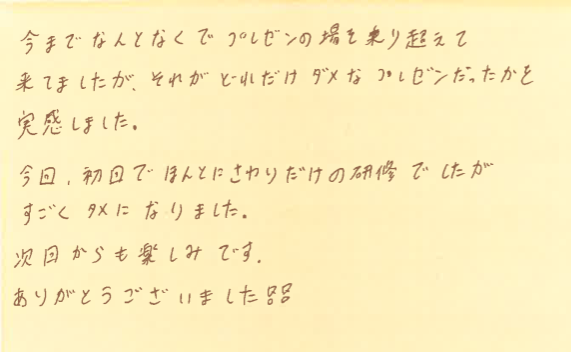 今までなんとなくでプレゼンの場を乗り超えて
来てましたが、それがどれだけダメなプレゼンだったかを
実感しました。
今回、初回でほんとにさわりだけの研修でしたが
すごくタメになりました。
次回からも楽しみです。
ありがとうございました